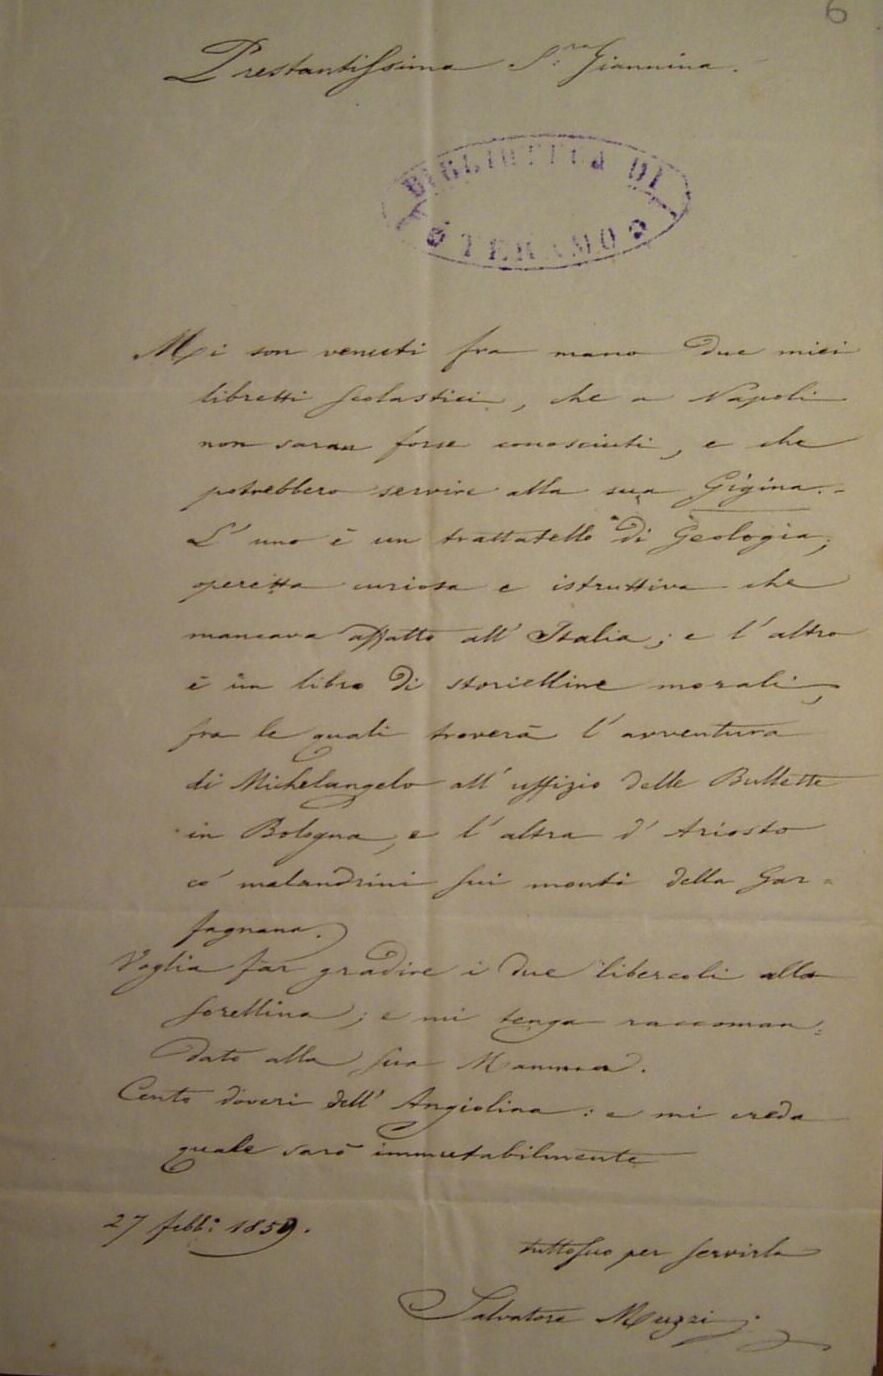 6
Prestantissima S.ra Giannina.
BIBLIOTECA DI
TERAMO
Mi son venuti fra mano due miei
libretti scolastici, che a Napoli
non saran forse conosciuti, e che
potrebbero servire alla sua Gigina.
L'uno è un trattatello di Geologia,
operetta curiosa e istruttiva che
mancava affatto all'Italia; e l'altro
è un libro di storielline morali,
fra le quali troverà l'avventura
di Michelangelo all'uffizio delle Bullette
in Bologna, e l'altra d'Ariosto
co' malandrini sui monti della Gar=
fagnana.
Voglia far gradire i due libercoli alla
sorellina; e mi tenga raccoman=
dato alla sua Mamma.
Cento doveri dell'Angiolina: e mi creda
quale sarò immutabilmente
27 febb: 1859.
tutto suo per servirla
Salvatore Muzzi.